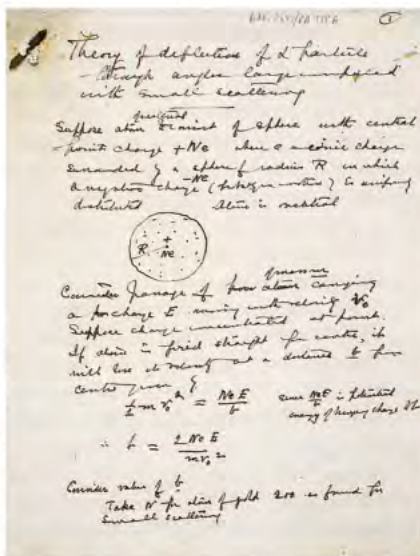 ①
Theory of deflection of α particle
– through angles large compared
with small scattering
Suppose atom consist of sphere with central
point charge +Ne where e is atomic charge
surrounded by a sphere of radius R in which
a negative charge -Ne is uniformly
distributed Atom is neutral
+
R Ne
Consider passage of carrying
a charge E moving with velocity V₀
Suppose charge concentrated at point.
If atom is fired straight for centre, it
will lose its velocity at a distance b from
centre given by
½ m v₀² = NeE/b since NeE/b is potential
energy of charge
∴ b = 2NeE/mv₀²
Consider value of b
Take N for atom of gold 200 as found for
small scattering